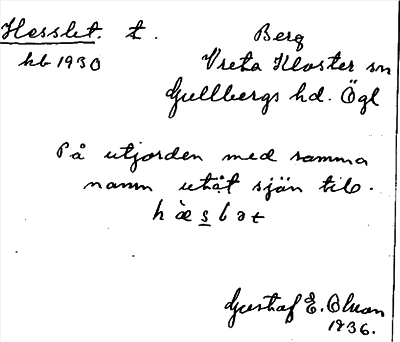 Hesslet. t. Berg
hb 1930 Vreta Kloster sn
Gullbergs hd. Ögl
På utjorden med samma
namn utåt sjön till.
h æ̀ s l ə t
Gustaf E. Olson
1936.